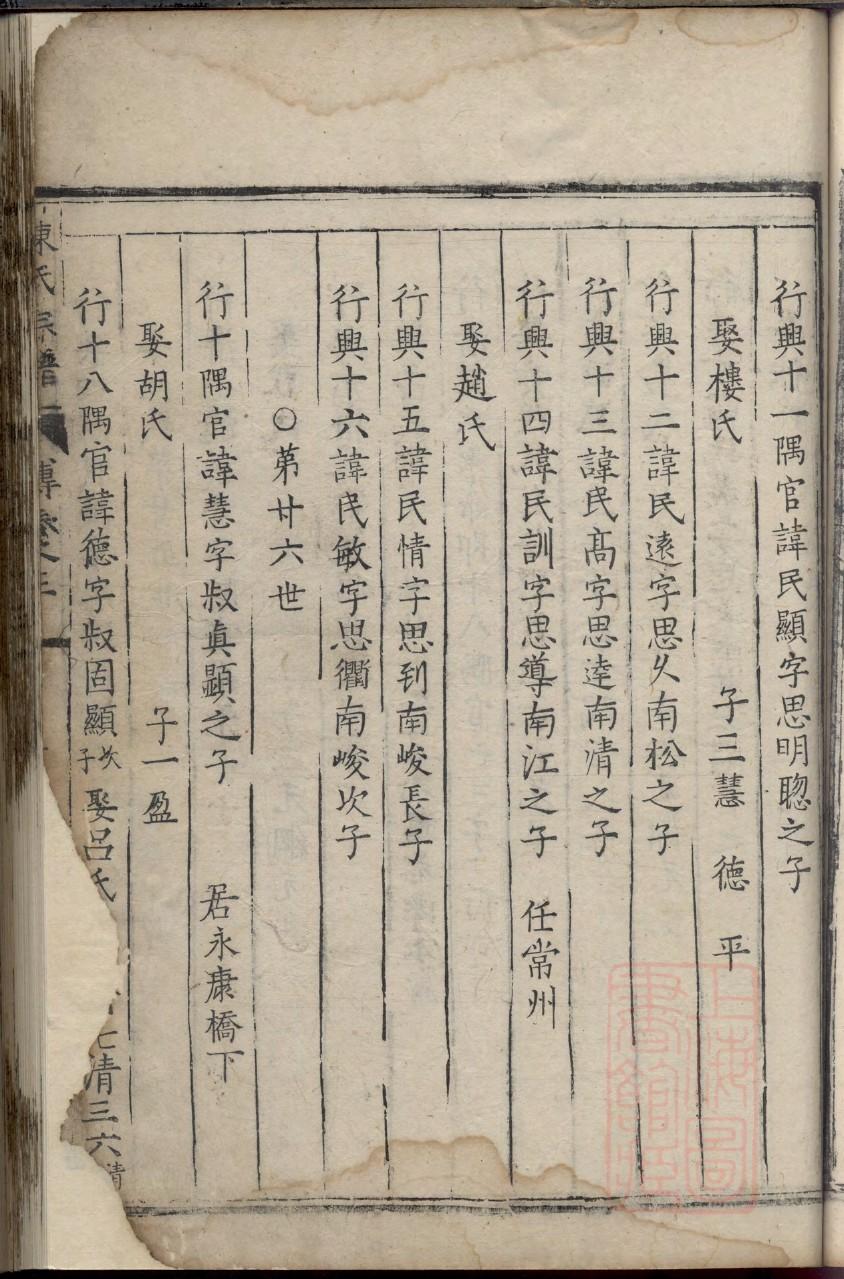 行興十一隅官諱民顯字思明聰之子
娶樓氏 子三慧 德 平
行興十二諱民遠字思久南松之子
行興十三諱民高字思逵南清之子
行興十四諱民訓字思導南江之子 任常州
娶趙氏
行興十五諱民情字思到南峻長子
行興十六諱民敏字思衢南峻次子
○第廿六世
行十隅官諱慧字叔真顯之子 居永康橋下
娶胡氏 子一盈
行十八隅官諱德字叔固顯次子娶呂氏 七清三六清
陳氏宗譜 傳 三
上海圖書館藏